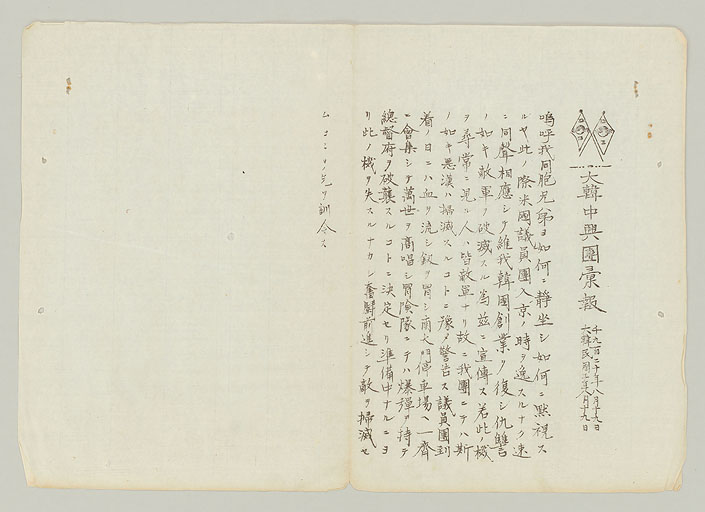 大韓中興團彙報
千九百二十年八月十九日
大韓民國二年八月十九日
嗚呼我同胞兄弟ヨ如何ニ靜坐シ如何ニ默視ス
ルヤ此ノ際米國議員團入京ノ時ヲ逸スルナク速
ニ同聲相應シテ維我韓國創業ヲ復シ仇讐
ノ如キ敵軍ヲ破滅スル為茲ニ宣傳ス若此ノ機
ヲ尋常ニ見ル人ハ皆敵軍ナリ故ニ我團ニテハ斯
ノ如キ悪漢ハ掃滅スルコトニ豫メ警告ス議員團到
着ノ日ニハ血ヲ流シ釼ヲ冒シ南大門停車場ヘ一齊
ニ會集シテ萬世ヲ高唱シ冒險隊ニテハ爆彈ヲ持テ
總督府ヲ破襲スルコトニ決定セリ準備中ナルニヨ
リ此ノ機ヲ失スルナカレ奮鬪前進シテ敵ヲ掃滅セ
ムコトヲ先ツ訓令ス